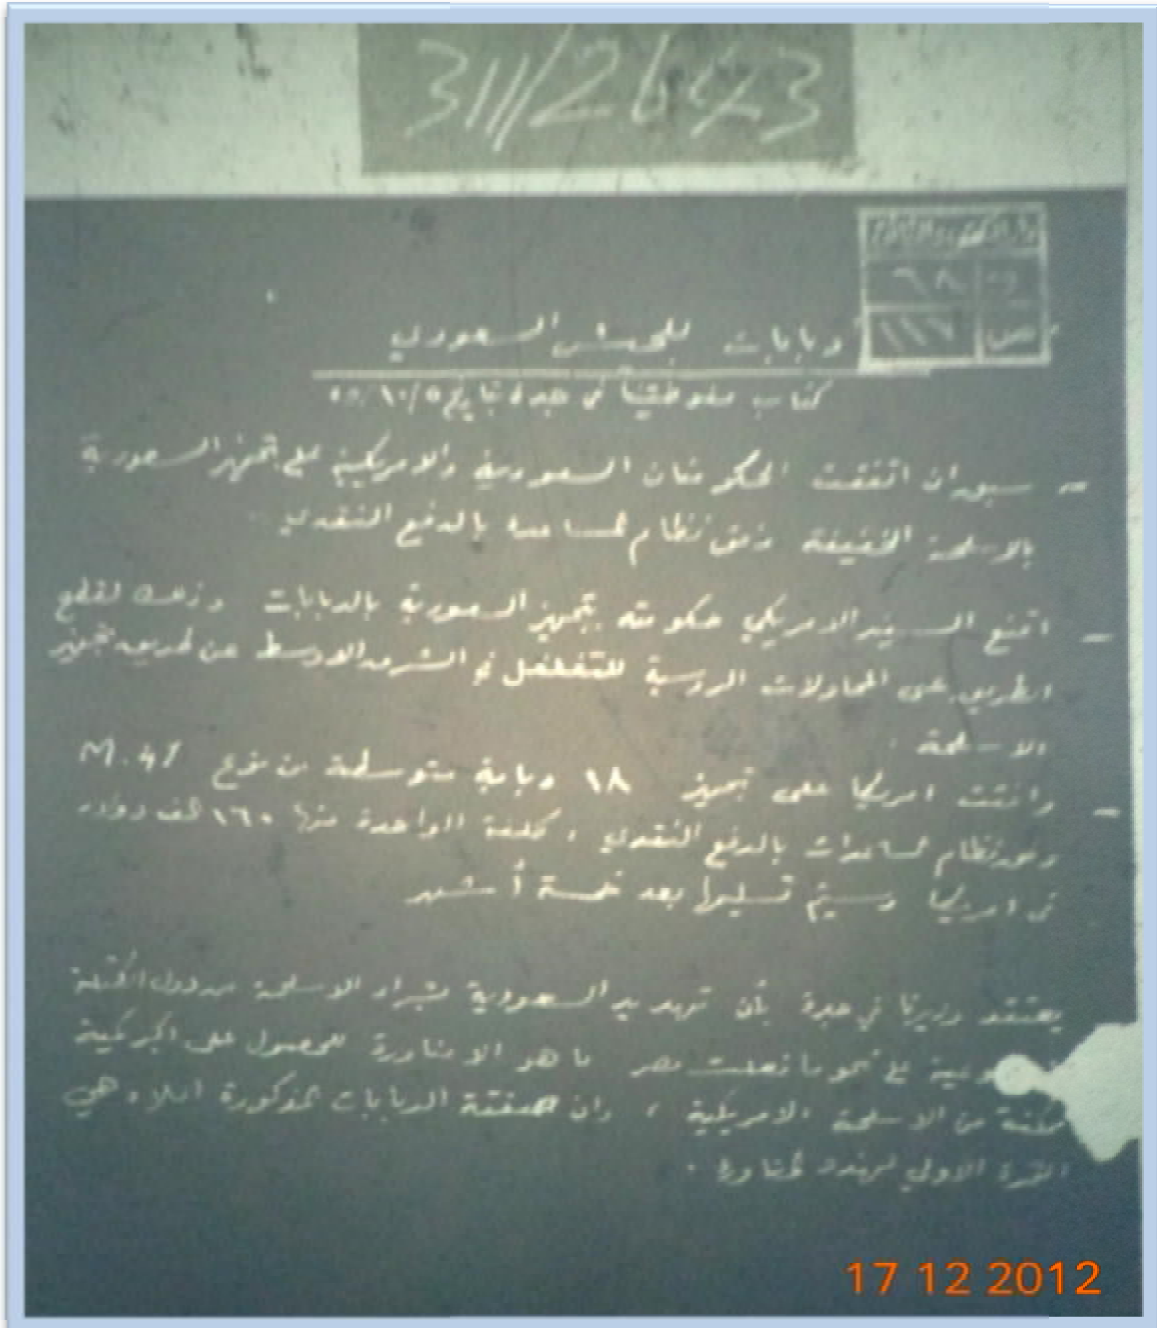 311/2643
دار الكتب والوثائق
و ٦٨
ص ١١٧
دبابات للجيش السعودي
كتاب مفوضيتنا في جدة بتاريخ ٥/١٠/٥٥
- سبق ان اتفقت الحكومتان السعودية والامريكية على تجهيز السعودية
بالاسلحة الخفيفة وفق نظام المساعدة بالدفع النقدي .
- اقنع السفير الامريكي حكومته بتجهيز السعودية بالدبابات وذلك لقطع
الطريق على المحاولات الروسية للتغلغل في الشرق الاوسط عن طريق تجهيز
الاسلحة .
- وافقت امريكا على تجهيز ١٨ دبابة متوسطة من نوع M.41
وفق نظام المساعدات بالدفع النقدي ، كلفة الواحدة منها ١٦٠ الف دولار
في امريكا وسيتم تسليمها بعد خمسة أشهر
يعتقد وزيرنا في جدة بأن تهديد السعودية بشراء الاسلحة من دول الكتلة
على نحو ما فعلت مصر ما هو الا مناورة للحصول على اكبر كمية
ممكنة من الاسلحة الامريكية ، وان صفقة الدبابات المذكورة اعلاه هي
الثمرة الاولى لهذه المناورة .
17 12 2012